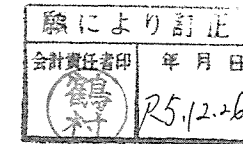 願により訂正
会計責任者印
年月日
鶴村
R5.12.26